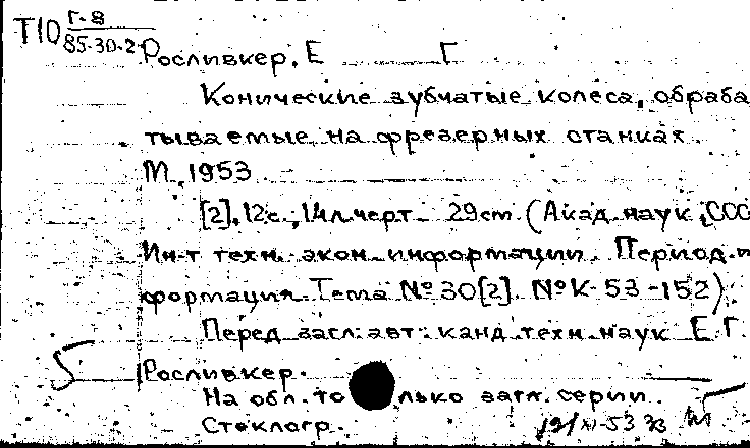 Т10 Г-8
85-30-2
Росливкер, Е Г
Конические зубчатые колеса, обраба
тываемые на фрезерных станках.
М, 1953
[2], 12с., 14л.черт. 29см (Акад. наук СССР
Ин-т техн. экон. информации. Период. и
формация. Тема №30[2]. №К-53-152)
Перед загл. авт.: канд. техн. наук Е.Г.
Росливкер.
На обл. только загл. серии.
Стеклогр.